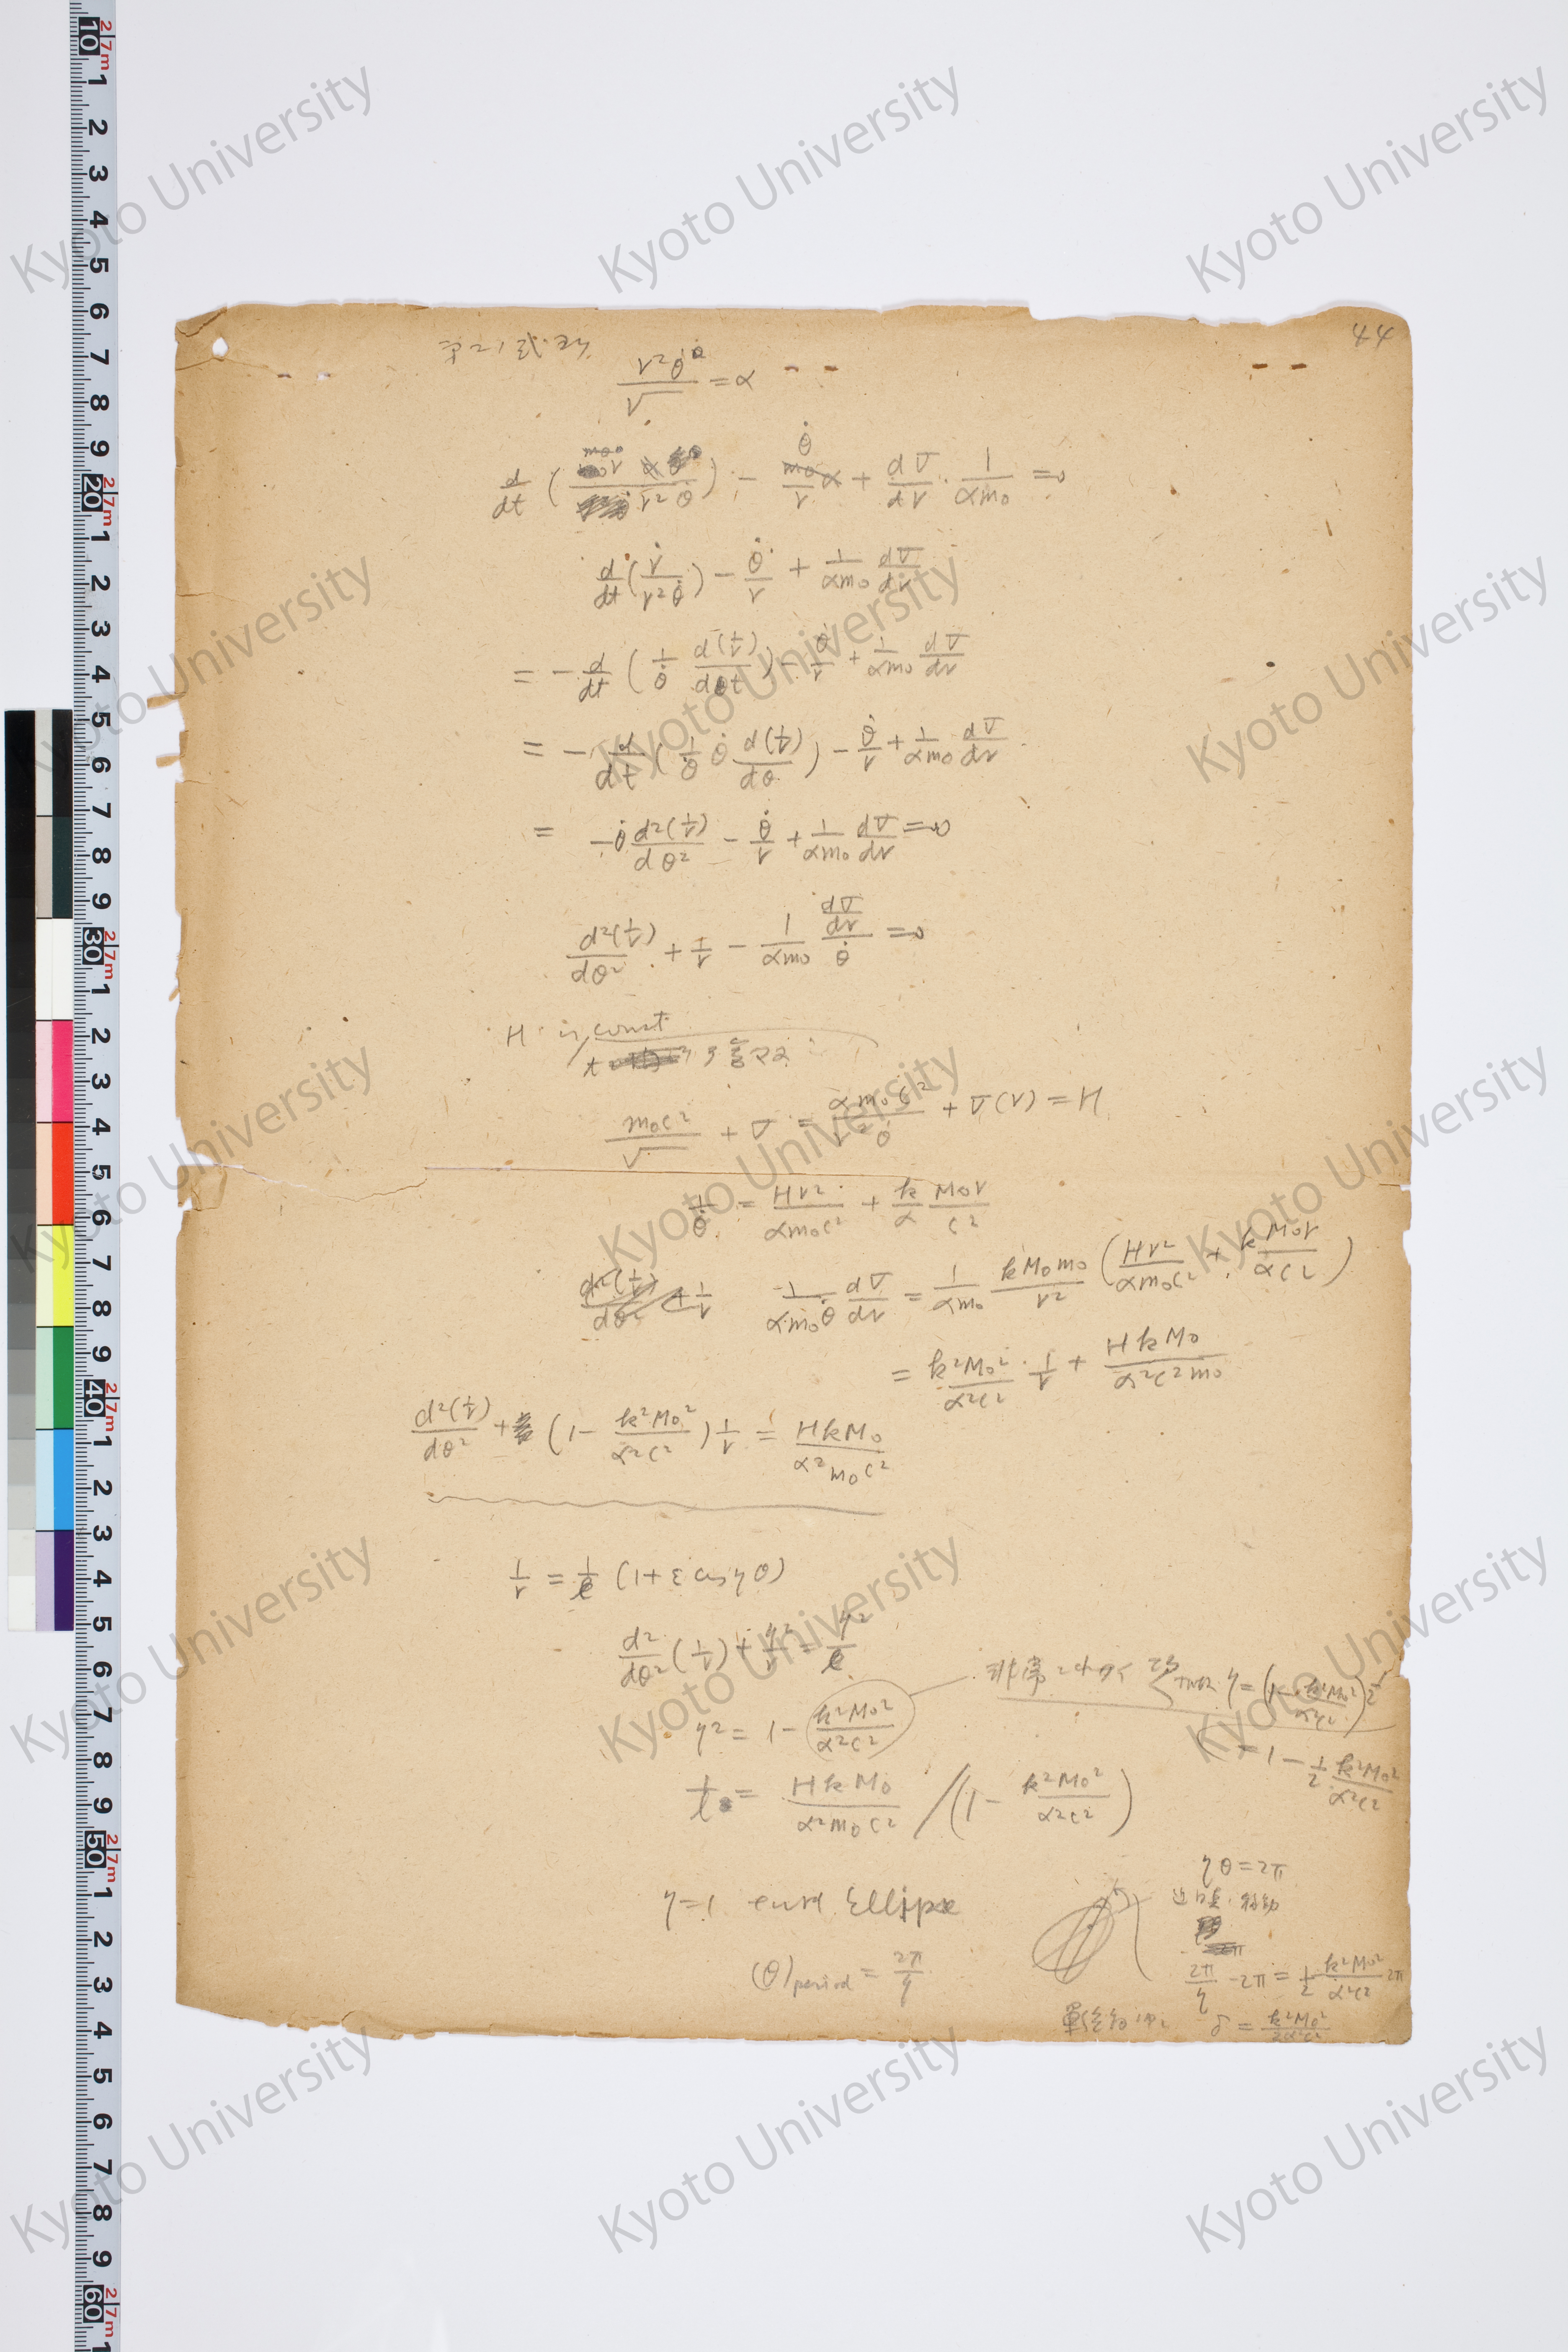 44
r²θ̇ / √ = α
d/dt ( r² θ̇ ) - θ̇/r + dV/dr · 1/αm₀ = 0
d/dt ( ṙ / r²θ̇ ) - θ̇/r + 1/αm₀ dV/dr
= - d/dt ( 1/θ̇ d(1/r)/dt ) - θ̇/r + 1/αm₀ dV/dr
= - d/dt ( 1/θ̇ θ̇ d(1/r)/dθ ) - θ̇/r + 1/αm₀ dV/dr
= -θ̇ d²(1/r)/dθ² - θ̇/r + 1/αm₀ dV/dr = 0
d²(1/r)/dθ² + 1/r - 1/αm₀ (dV/dr)/θ̇ = 0
H is const
m₀c²/√ + V = αm₀c²/r²θ̇ + V(r) = H
1/θ̇ = Hr²/αm₀c² + k/α M₀r/c²
d²(1/r)/dθ² + 1/r 1/αm₀θ̇ dV/dr = 1/αm₀ kM₀m₀/r² ( Hr²/αm₀c² + kM₀r/αc² )
= k²M₀²/α²c² · 1/r + HkM₀/α²c²m₀
d²(1/r)/dθ² + ( 1 - k²M₀²/α²c² ) 1/r = HkM₀/α²m₀c²
1/r = 1/l (1 + ε cos ηθ)
d²/dθ² (1/r) + η²/r = η²/l
非常ニ小サク η = ( 1 - k²M₀²/α²c² )^½
η² = 1 - k²M₀²/α²c²
= 1 - 1/2 k²M₀²/α²c²
1/l = HkM₀/α²m₀c² / ( 1 - k²M₀²/α²c² )
ηθ = 2π
近日点 移動
η = 1 Ellipse
(θ)period = 2π/η
2π/η - 2π = 1/2 k²M₀²/α²c² 2π
δ = k²M₀²/2α²c²
Kyoto University